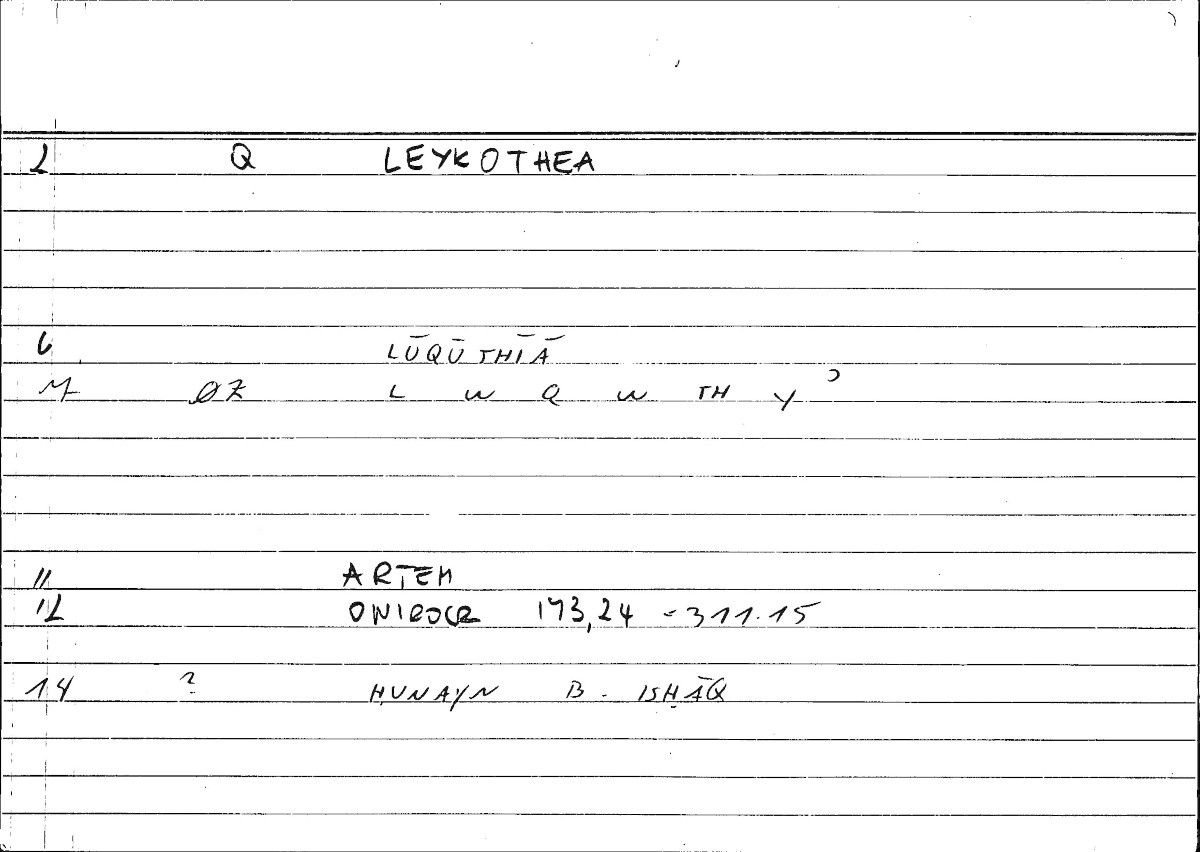 2 Q LEYKOTHEA
6 LŪQŪTHĪĀ
7 ØZ L W Q W TH Y ʾ
11 ARTEM
12 ONIROCR 173,24 - 311.15
14 ? ḤUNAYN B. ISḤĀQ